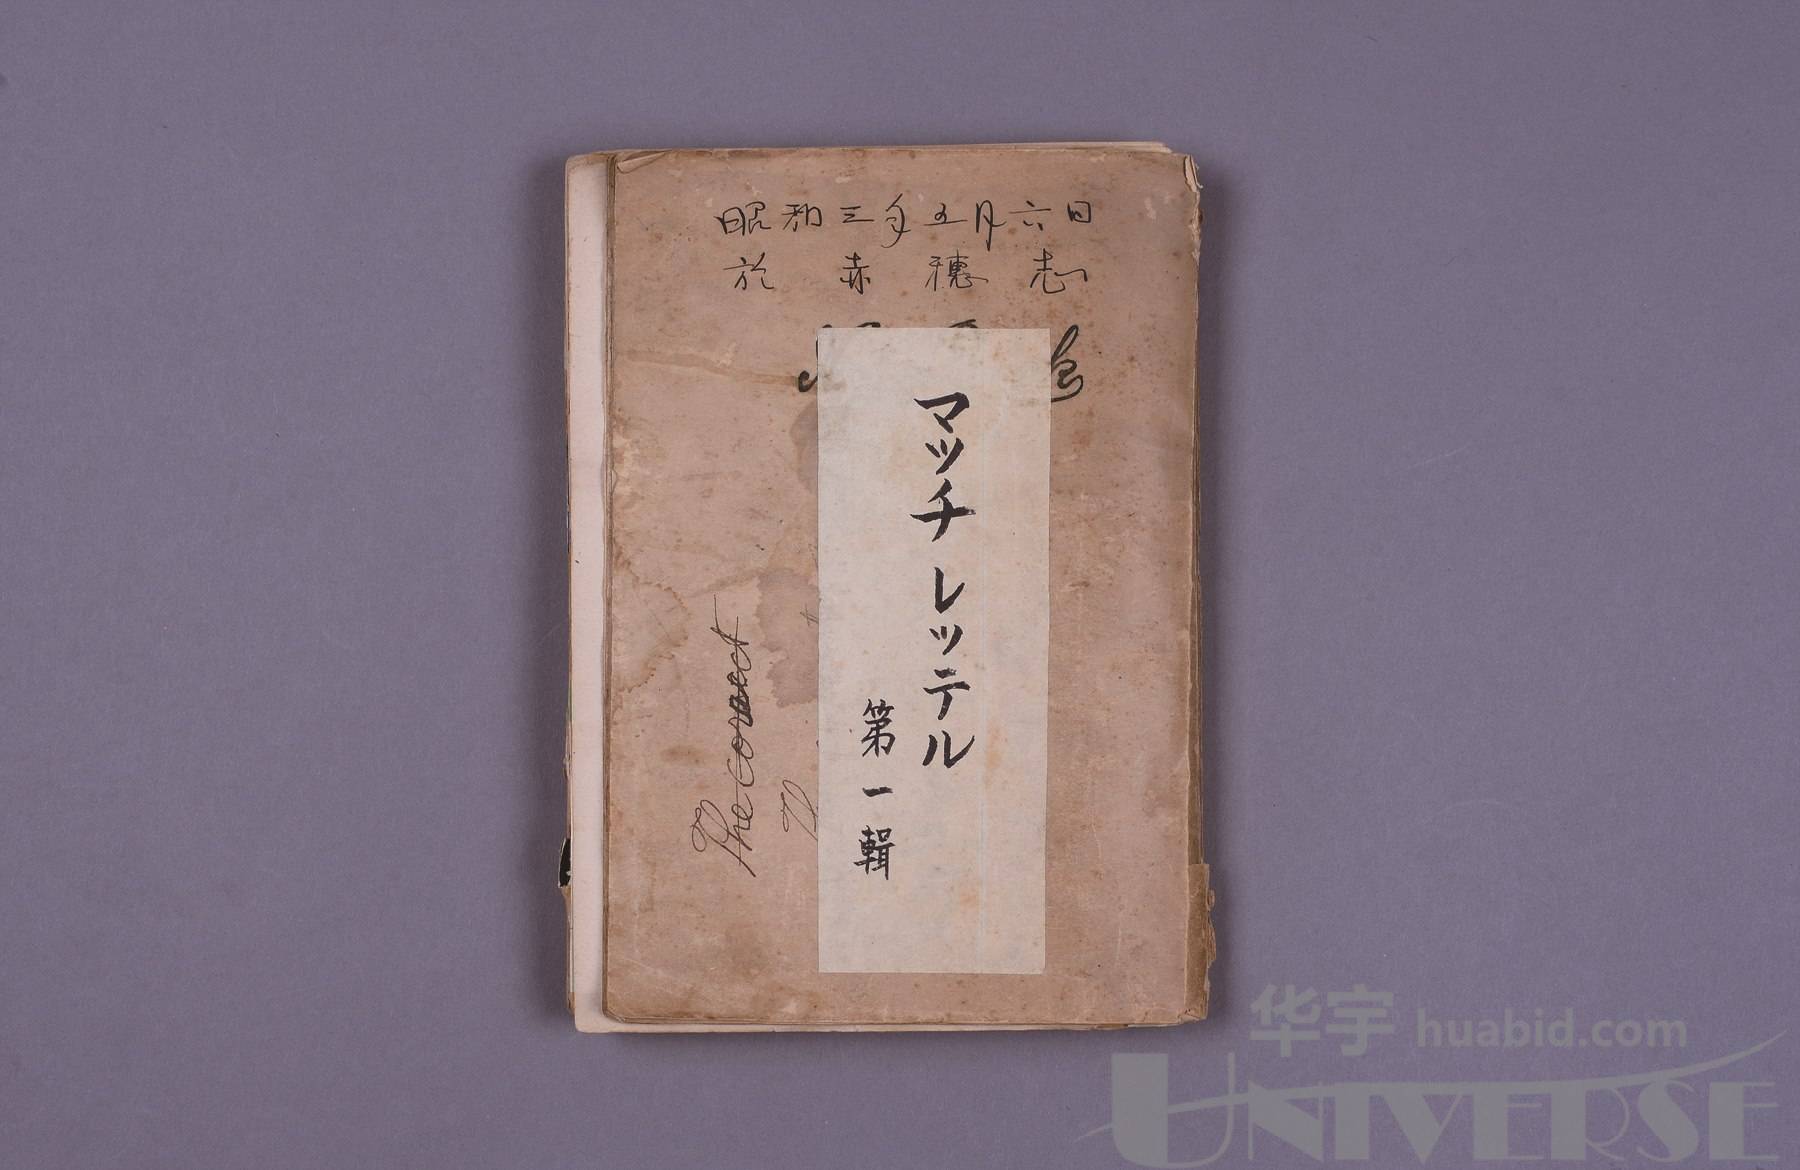 昭和三年五月六日
於赤穗志
マッチレッテル
第一輯
The correct
华宇 huabid.com
UNIVERSE